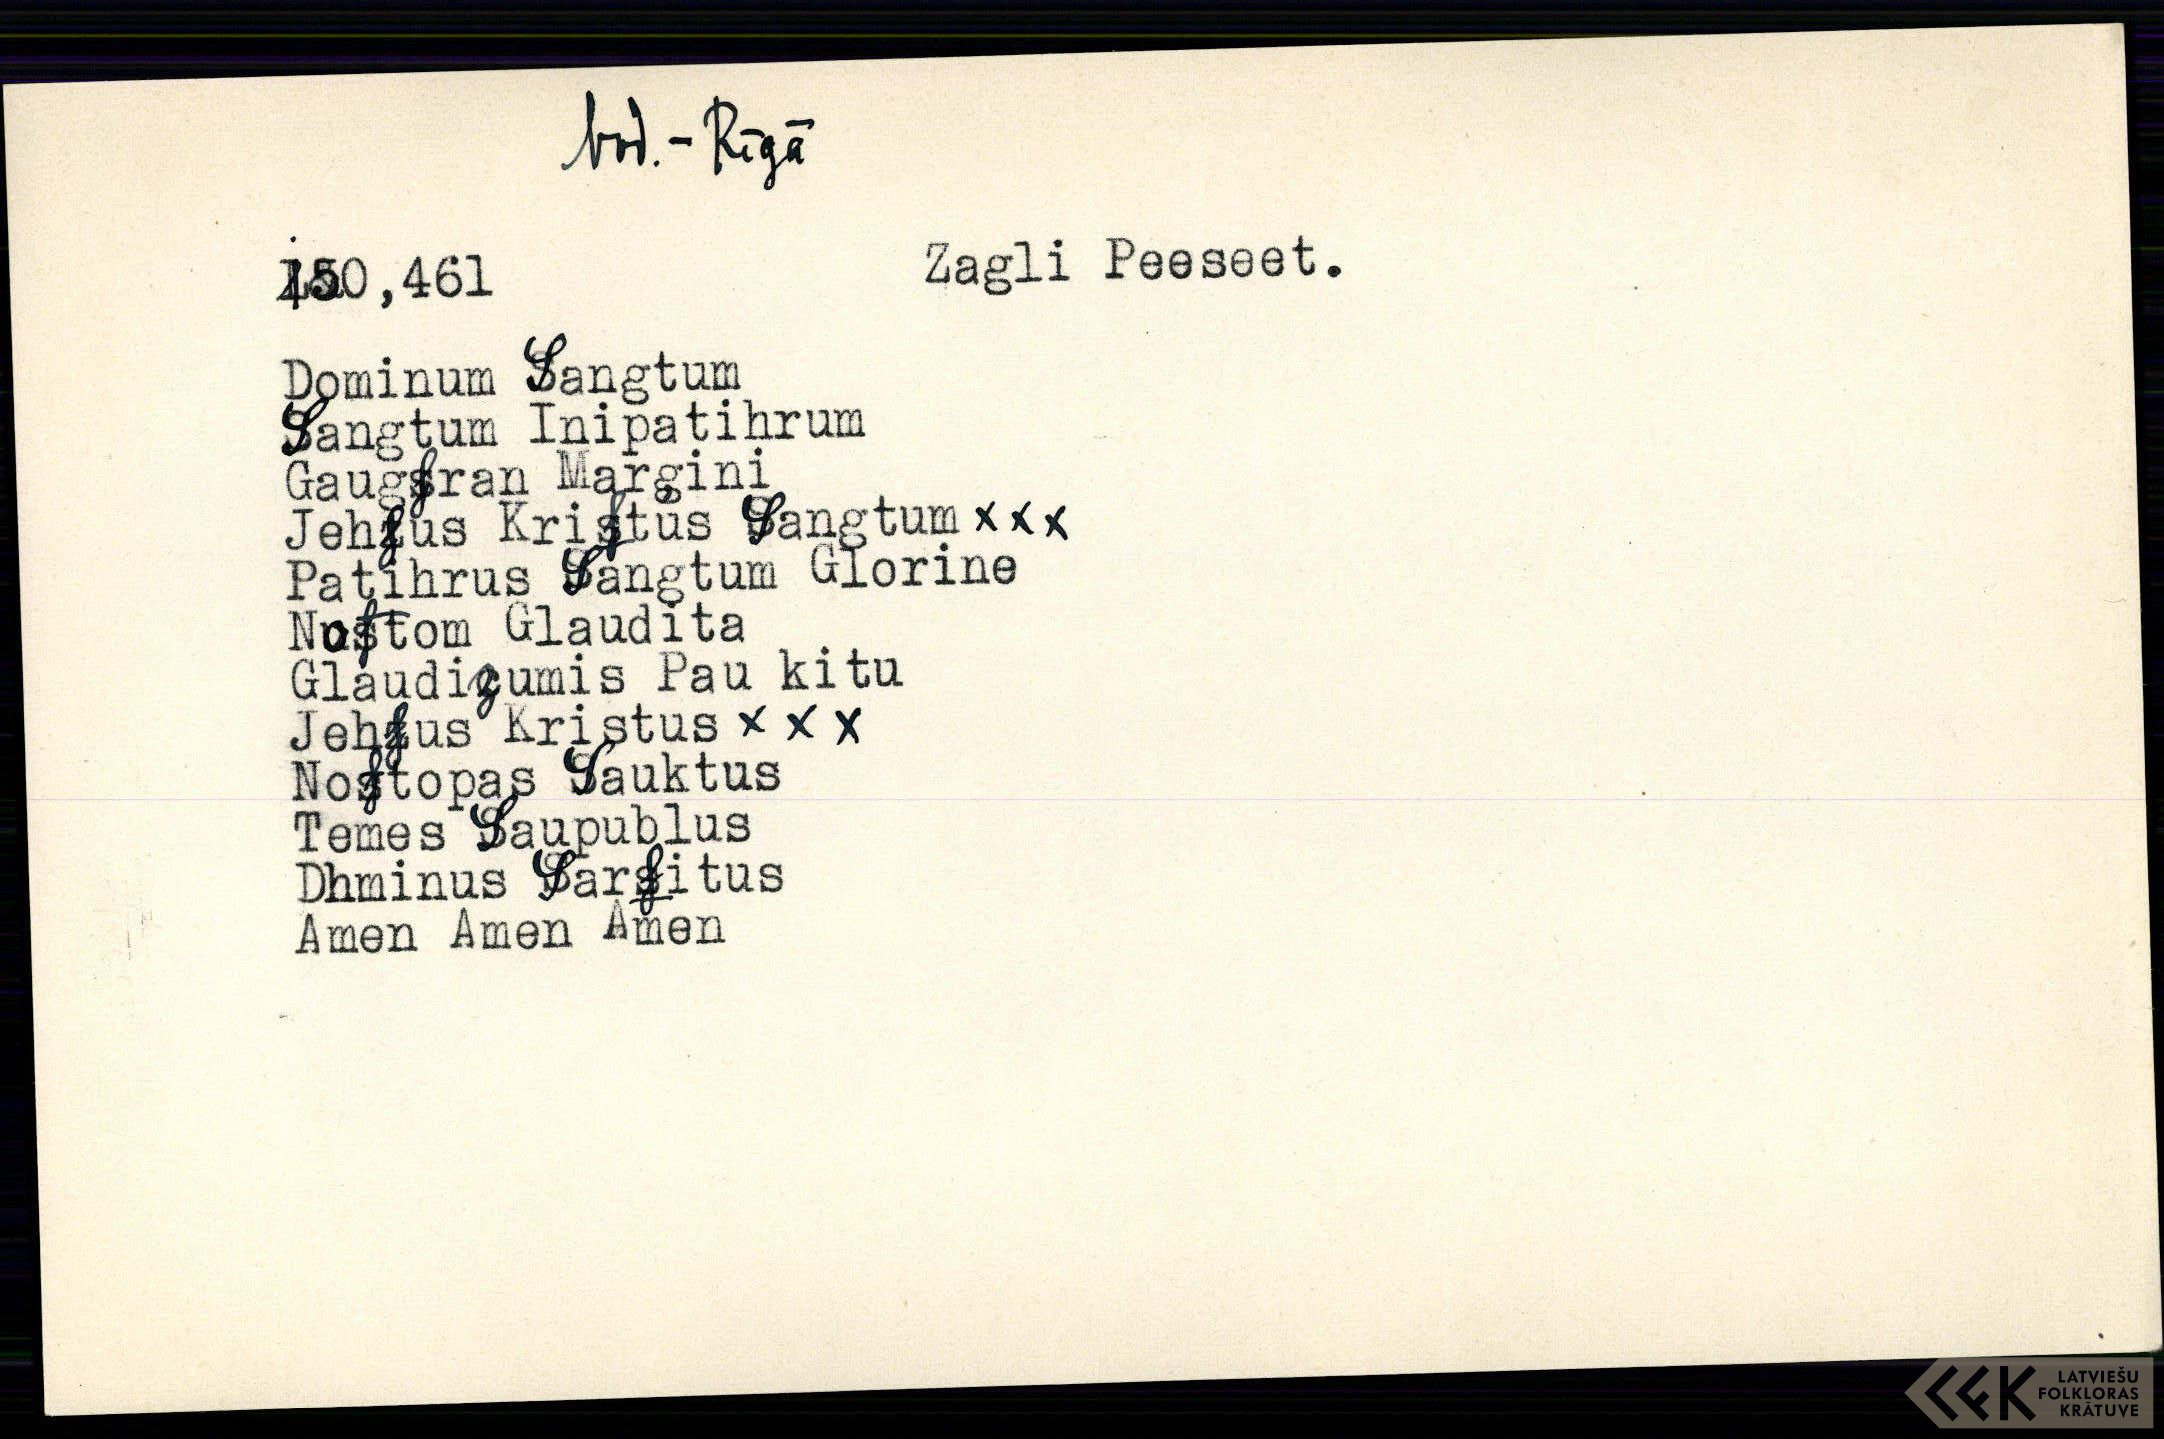 bod. - Rīgā
150,461 Zagli Peeseet.
Dominum Sangtum
Sangtum Inipatihrum
Gaugſran Marģini
Jehſus Kriſtus Sangtum x x x
Patihrus Sangtum Glorine
Noſtom Glaudita
Glaudizumis Pau kitu
Jehſus Kristus x x x
Noſtopas Sauktus
Temes Saupublus
Dhminus Sarſitus
Amen Amen Amen
LATVIEŠU
FOLKLORAS
KRĀTUVE